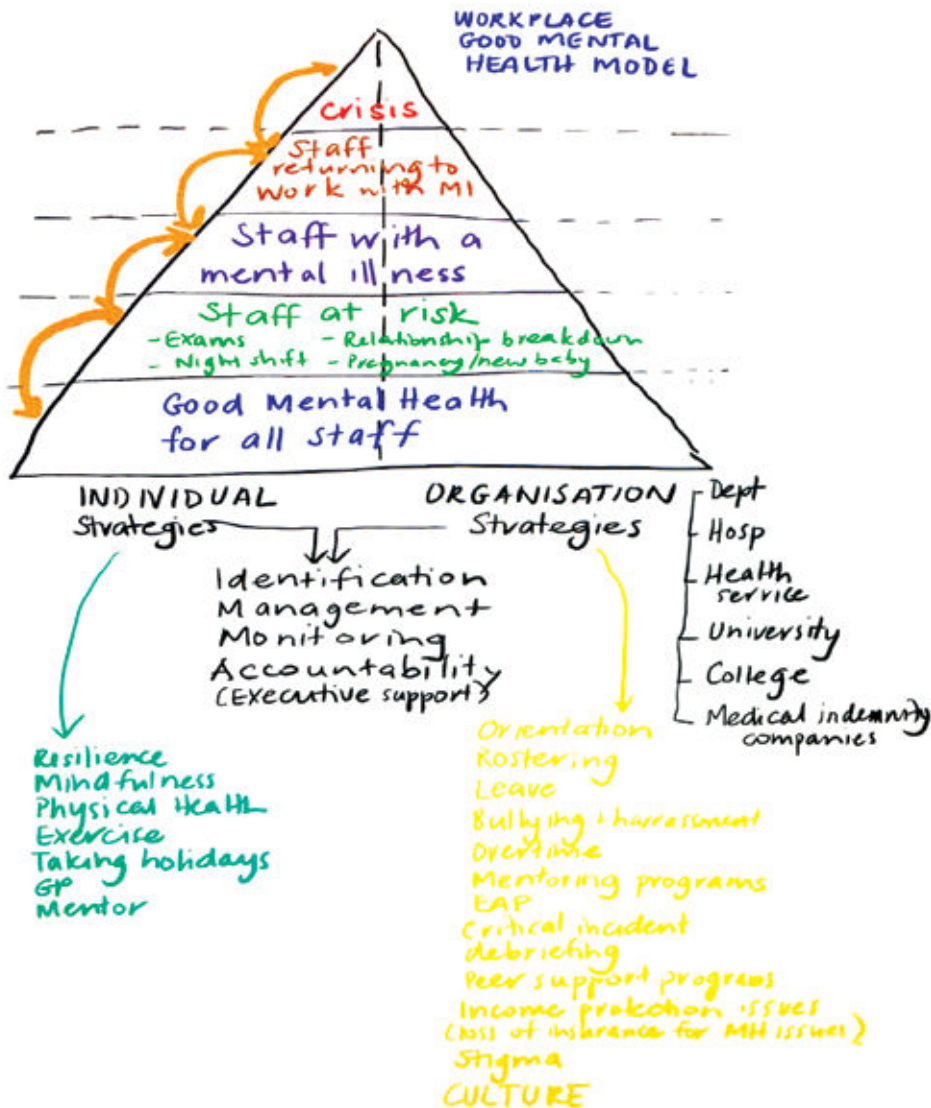 WORKPLACE
GOOD MENTAL
HEALTH MODEL
crisis
Staff
returning to
work with MI
Staff with a
mental illness
Staff at risk
- Exams - Relationship breakdown
- Night shift - Pregnancy/new baby
Good Mental Health
for all staff
INDIVIDUAL
Strategies
ORGANISATION
Strategies
Dept
Hosp
Health
service
University
College
Medical indemnity
companies
Identification
Management
Monitoring
Accountability
(Executive support)
Resilience
Mindfulness
Physical Health
Exercise
Taking holidays
GP
Mentor
Orientation
Rostering
Leave
Bullying + harrassment
Overtime
Mentoring programs
EAP
Critical incident
debriefing
Peer support programs
Income protection issues
(loss of insurance for MH issues)
Stigma
CULTURE